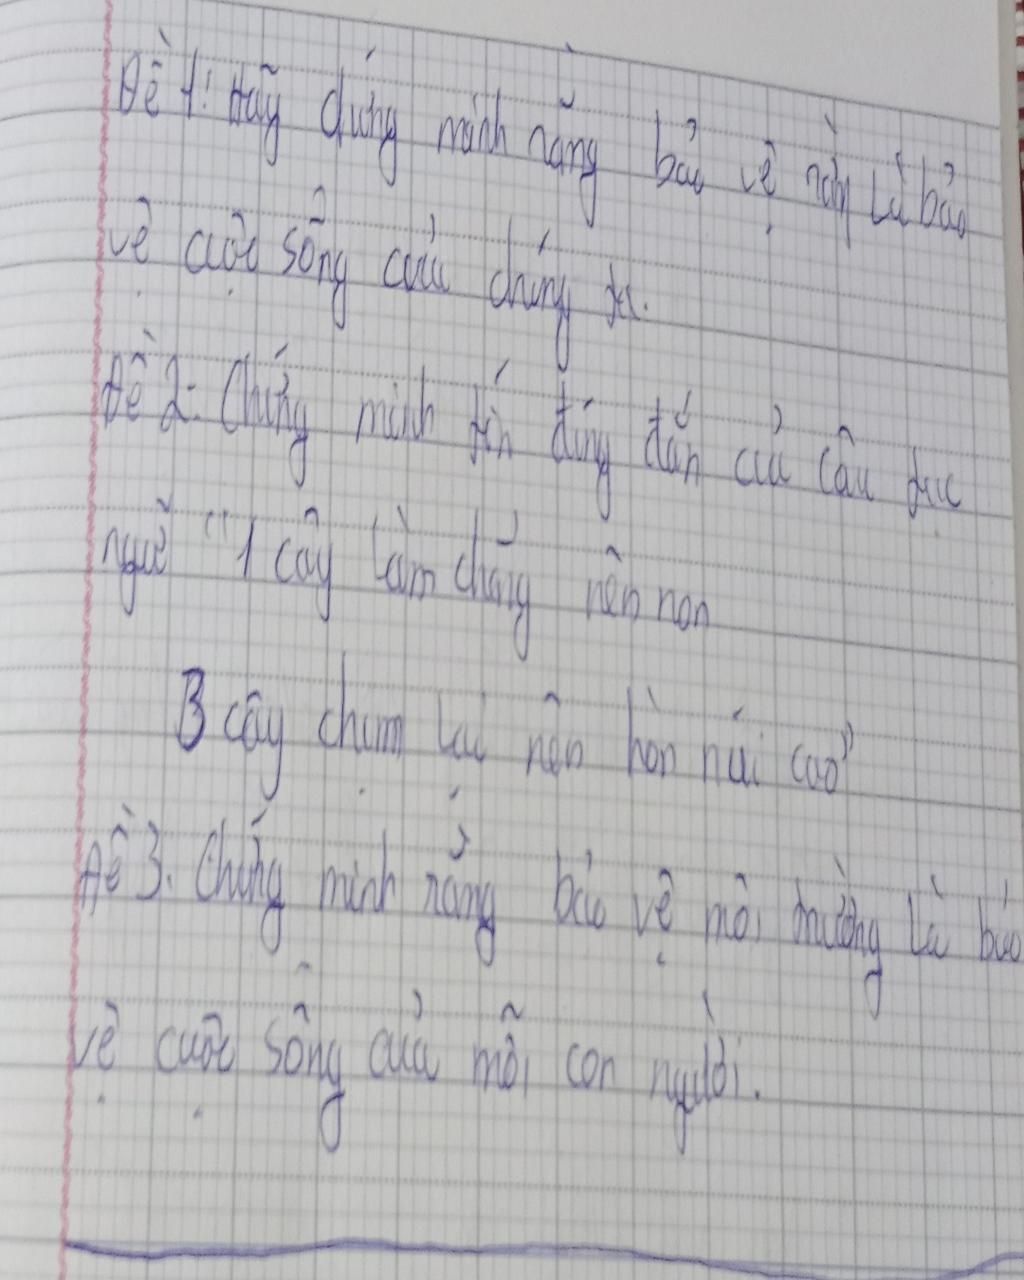 Đề 1: Hãy chứng minh rằng bảo vệ rừng là bảo
vệ cuộc sống của chúng ta.
Đề 2: Chứng minh tín đúng đắn của câu tục
ngữ "1 cây làm chẳng nên non
3 cây chụm lại nên hòn núi cao"
Đề 3. Chứng minh rằng bảo vệ môi trường là bảo
vệ cuộc sống của mỗi con người.